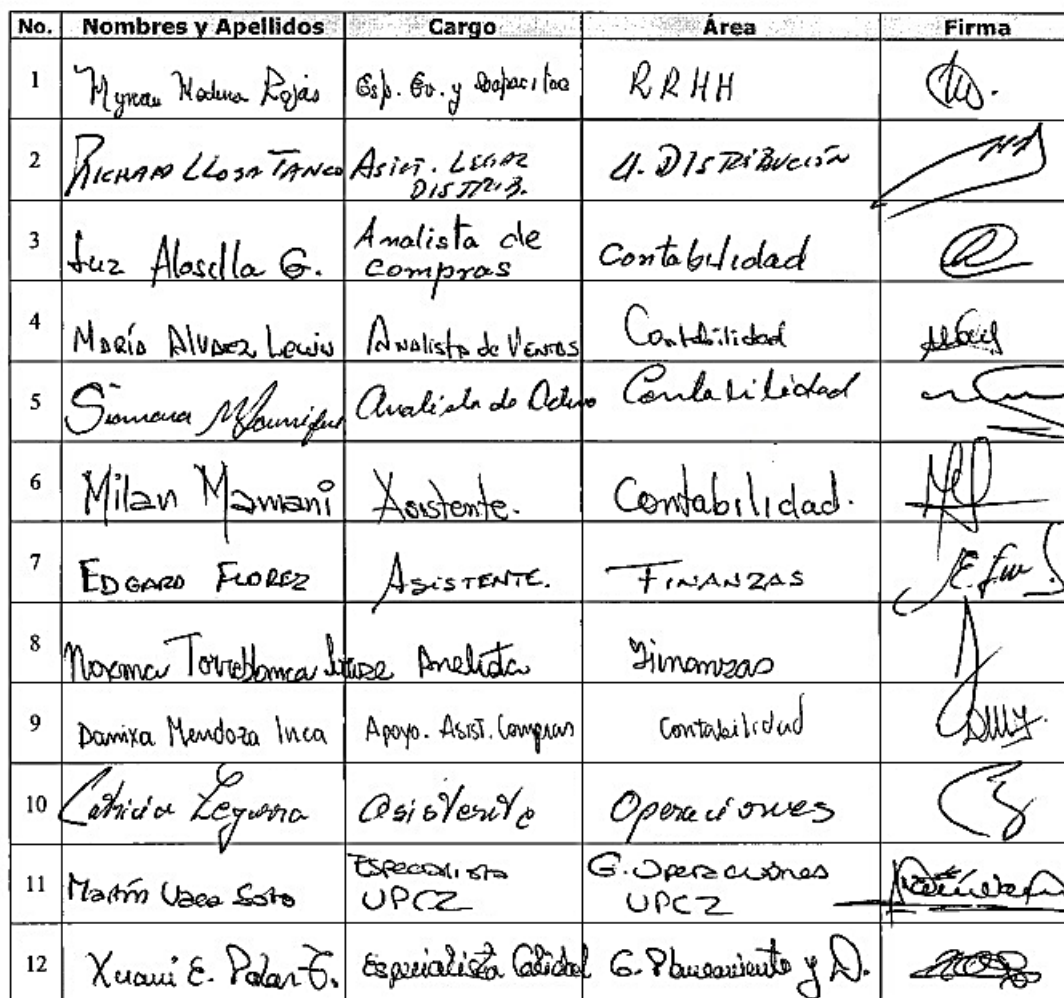 No. Nombres y Apellidos Cargo Área Firma
1 Rojas Esp. Ev. y RRHH
2 RICHARD LLOSA TANCO ASIST. LEGAL DISTRIB. U. DISTRIBUCIÓN
3 Luz Alosilla G. Analista de compras Contabilidad
4 MARÍA Analista de Ventas Contabilidad
5 Analista de Contabilidad
6 Milan Mamani Asistente. Contabilidad.
7 EDGARD FLOREZ ASISTENTE. FINANZAS
8 Norma Torreblanca Analista Finanzas
9 Damixa Mendoza Inca Apoyo. Asist. Compras Contabilidad
10 Asistente Operaciones
11 Martín Vaca Soto Especialista UPCZ G. Operaciones UPCZ
12 E. Especialista Calidad G. Planeamiento y D.